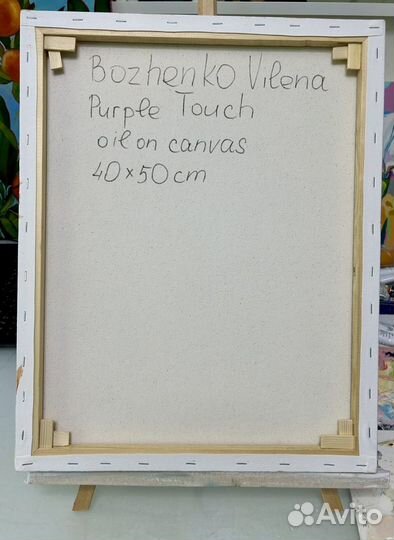 Bozhenko Vilena
Purple Touch
oil on canvas
40×50 cm
Avito